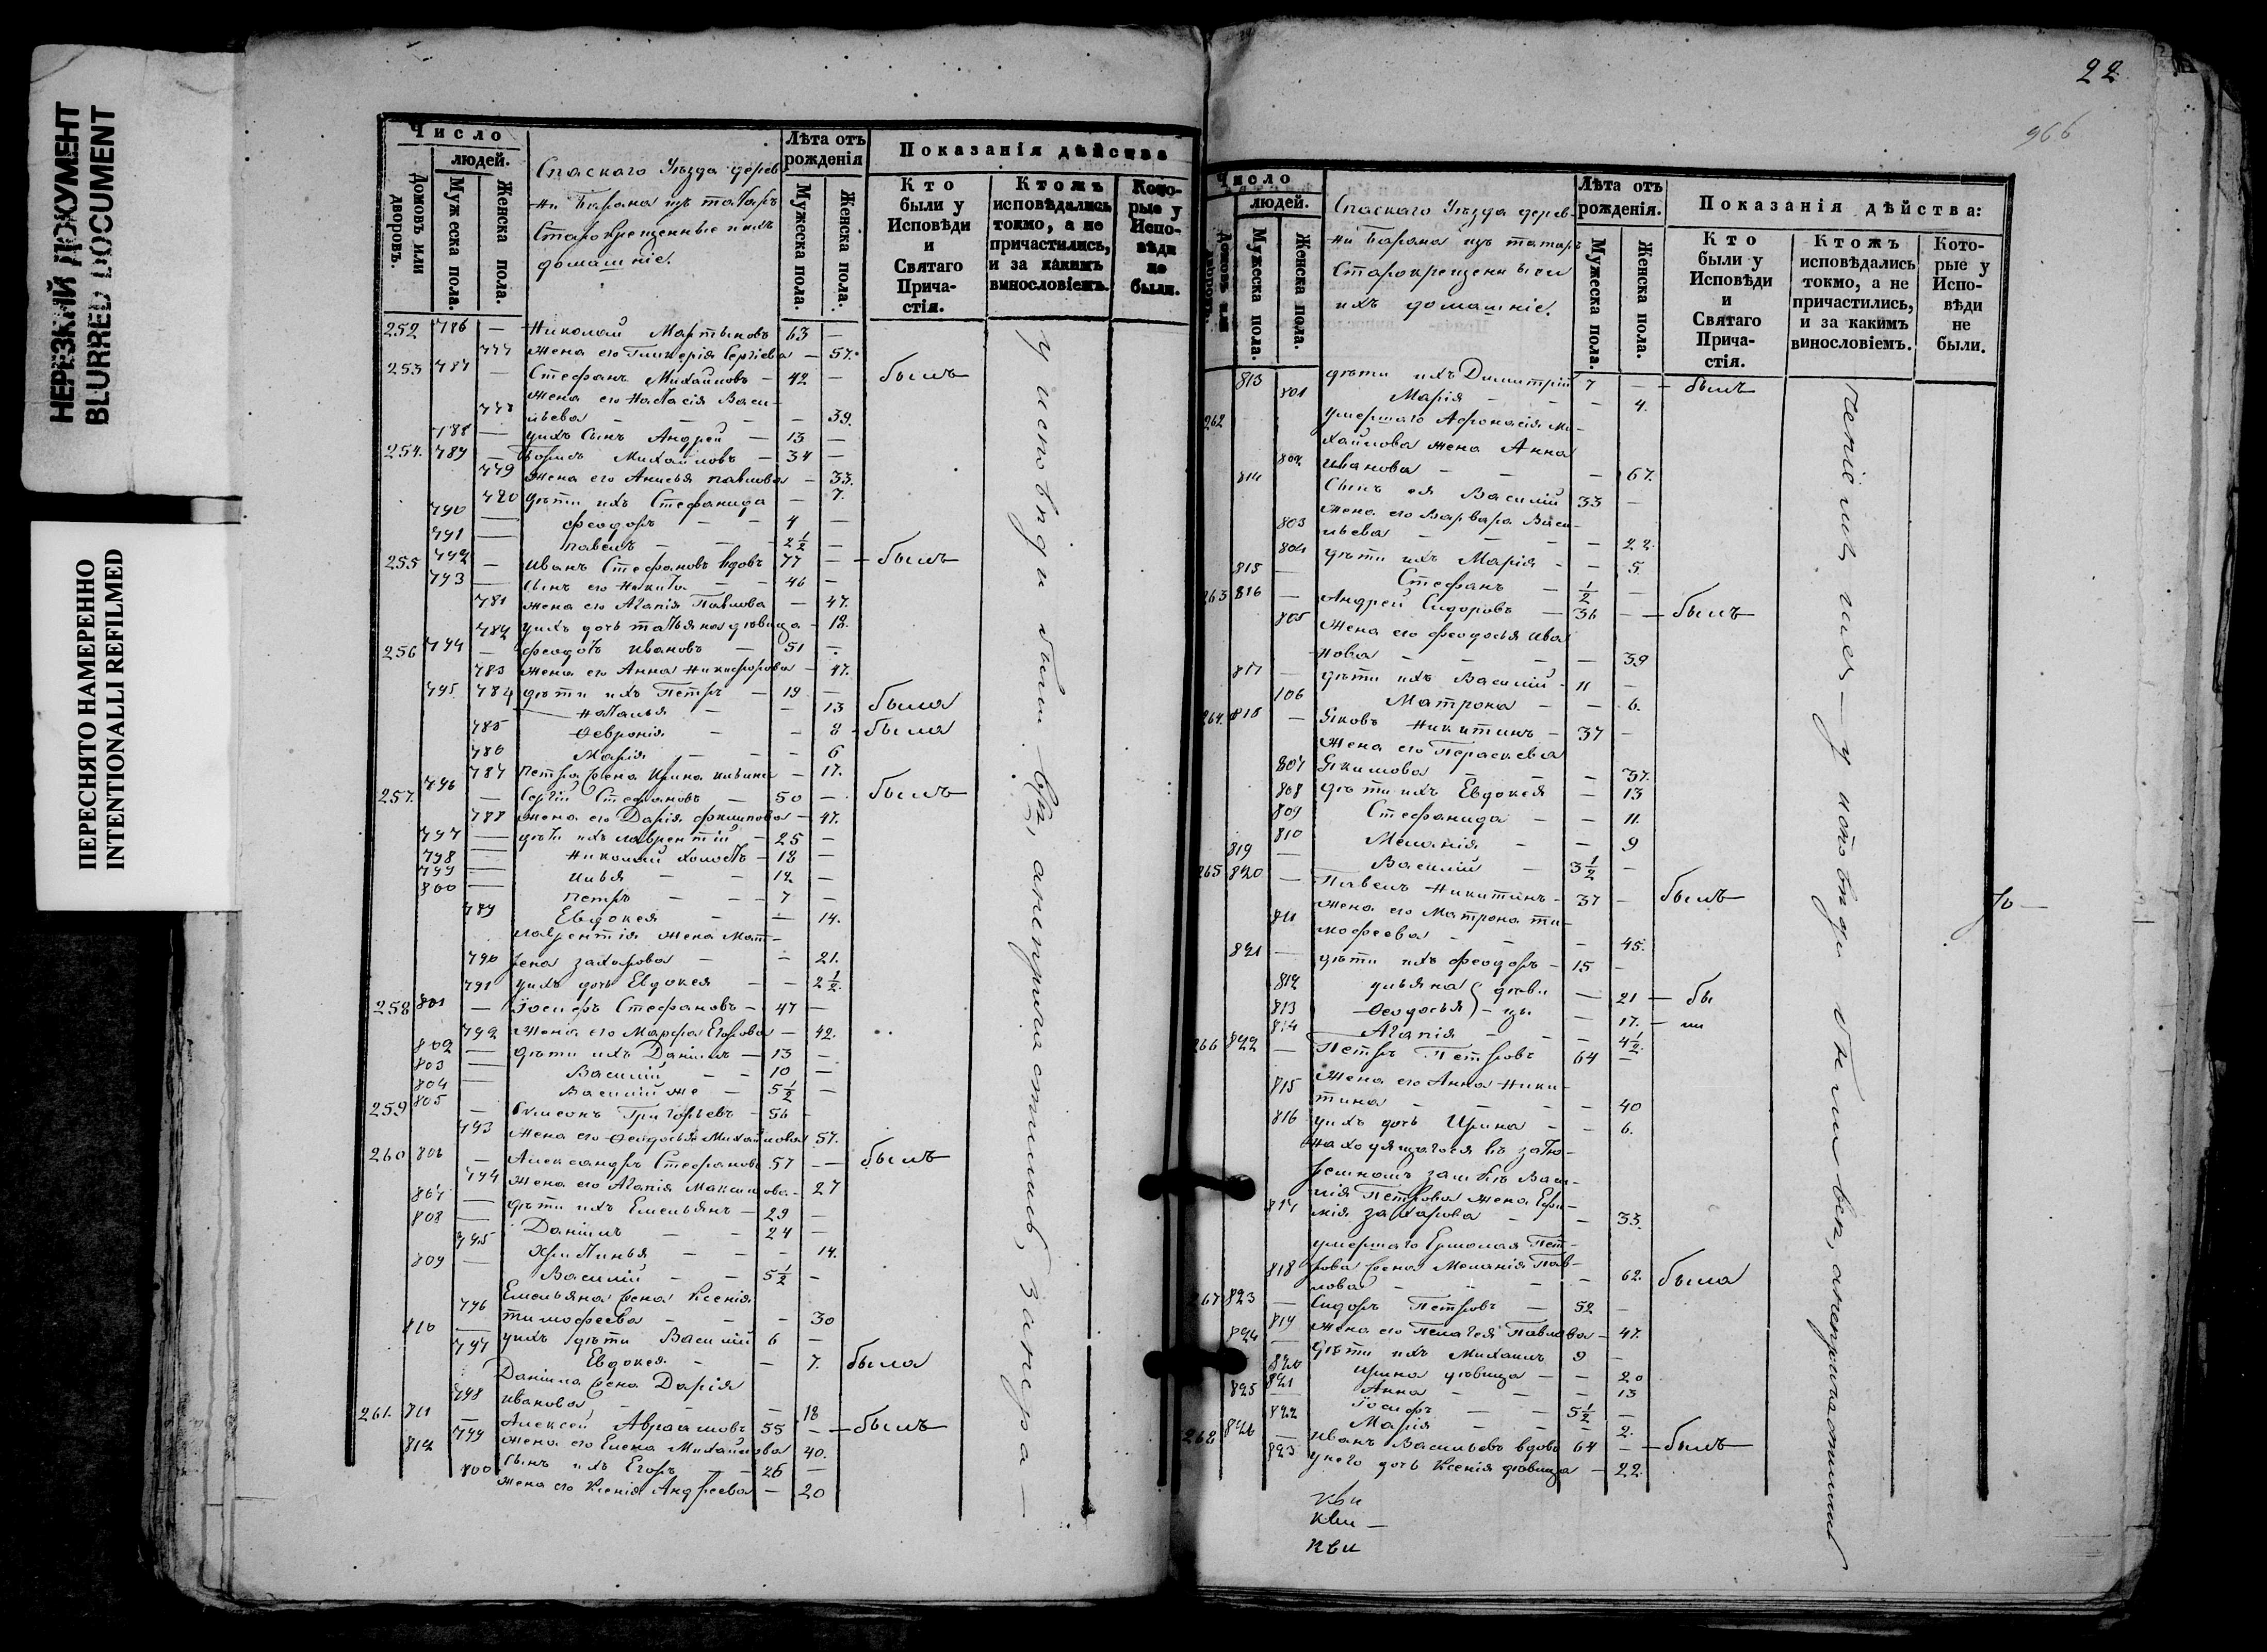 НЕРЕЗКИЙ ДОКУМЕНТ
BLURRED DOCUMENT
ПЕРЕСНЯТО НАМЕРЕННО
INTENTIONALI REFILMED
Число
людей.
Домовъ или дворовъ.
Мужеска пола.
Женска пола.
Спаскаго Уѣзда дерев-
ни Барана изъ татаръ
Старокрещенные и ихъ
домашніе.
Лѣта отъ рожденія
Мужеска пола.
Женска пола.
Показанія дѣйства
Кто были у Исповѣди и Святаго Причастія.
Ктожъ исповѣдались токмо, а не причастились, и за какимъ винословіемъ.
Которые у Исповѣди не были.
252 786 — Николай Мартыновъ 63 —
777 жена его Гликерія Сергіева — 57.
253 787 — Стефанъ Михайловъ — 42 — былъ
жена его Настасія Васи-
778 льева — — — — 39.
788 — у нихъ сынъ Андрей — 13 —
254. 789 — Борисъ Михайловъ — 34 —
779 жена его Анисья Павлова — 33.
780 дѣти ихъ Стефанида — 7.
790 — Феодоръ — — 4 —
791 — Павелъ — — 2½ —
255 792 — Иванъ Стефановъ вдовъ 77 — — былъ
793 — Сынъ его Никита — — 46 —
781 жена его Агапія Павлова — 47.
782 у нихъ дочь Татьяна дѣвица — 18.
256 794 — Феодотъ Ивановъ — 51 —
783 жена его Анна Никифорова — 47.
795 784 дѣти ихъ Петръ — 19 —
Наталья — — 13 была
785 Февронія — — 8 — была
786 Марія — — 6
787 Петра жена Ирина Ильина — 17.
257. 796 — Сергій Стефановъ — 50 — былъ
788 жена его Дарія Филипова — 47.
797 — дѣти ихъ Лаврентій — 25 —
798 — Николай холостъ — 18 —
799 — Илья — — 12 —
800 — Петръ — — 7 —
789 Евдокея — — 14.
Лаврентія жена Мат-
790 рена Захарова — — 21.
791 у нихъ дочь Евдокея — — 2½.
258 801 — Іосифъ Стефановъ — 47 —
792 жена его Марфа Егорова — 42.
802 — дѣти ихъ Даніилъ — 13 —
803 — Василій — — 10 —
804 — Василій же — 5½ —
259 805 — Симеонъ Григорьевъ — 56 —
793 жена его Феодосья Михайлова 57.
260 806 — Александръ Стефановъ 57 — — былъ
794 жена его Агапія Максимова — 27
807 — дѣти ихъ Емельянъ — 29 —
808 — Даніилъ — — 24 —
795 Христинья — — — 14.
809 — Василій — — 5½ —
Емельяна жена Ксенія
796 Тимофеева — — — 30
810 — у нихъ дѣти Василій 6 —
797 Евдокея — — 7. была
Даніила жена Дарія
798 Иванова — — — 18
261. 811 — Алексей Авраамовъ 55 — — былъ
799 жена его Елена Михайлова 40.
812 — сынъ ихъ Егоръ — — 26 —
800 жена его Ксенія Андреева — 20
у исповѣди были всѣ, а не причастились, за нера—
22
966
Число
людей.
Домовъ или дворовъ.
Мужеска пола.
Женска пола.
Спаскаго Уѣзда дерев-
ни Барана изъ татаръ
Старокрещенные и
ихъ домашніе.
Лѣта отъ рожденія.
Мужеска пола.
Женска пола.
Показанія дѣйства:
Кто были у Исповѣди и Святаго Причастія.
Ктожъ исповѣдались токмо, а не причастились, и за какимъ винословіемъ.
Которые у Исповѣди не были.
813 дѣти ихъ Димитрій 7 — — былъ
801 Марія — — — 4.
262 умершаго Афонасія Ми-
хайлова жена Анна
802 Иванова — — — 67.
814 Сынъ ея Василій 33 —
жена его Варвара Васи-
803 льева — — — — 22.
804 дѣти ихъ Марія — — 5.
815 — Стефанъ — ½ —
263 816 — Андрей Сидоровъ — 36 — — былъ
805 жена его Феодосья Ива-
нова — — — — 39
817 — дѣти ихъ Василій — 11 —
106 Матрона — — 6.
264. 818 — Яковъ Никитинъ — 37 —
жена его Параскева
807 Якимова — — — 37.
808 дѣти ихъ Евдокея — 13
809 Стефанида — — 11.
810 Меланія — — 9
819 — Василій — 3½ —
265 820 — Павелъ Никитинъ — 37 — былъ
жена его Матрона Ти-
811 мофеева — — — 45.
821 — дѣти ихъ Феодоръ — 15 —
812 Ульяна } дѣви- — 21 — бы
813 Феодосья } — цы — 17. — ли
814 Агапія — — — 4½.
266 822 — Петръ Петровъ 64 —
жена его Анна Ники-
815 тина — — — — 40
816 у нихъ дочь Ирина — — 6.
находящагося въ тю-
ремномъ замкѣ Васи-
лія Петрова жена Ефи-
817 мія Захарова — — 33.
умершаго Ермолая Пет-
818 рова жена Меланія Пав-
лова — — — — 62. была
267 823 — Сидоръ Петровъ — 52 —
819 жена его Пелагея Павлова — 47.
824 — дѣти ихъ Михаилъ 9 —
820 Ирина дѣвица — — 20
821 Анна — — — 13
825 — Іосифъ — — 5½ —
822 Марія — — — 2.
268 826 — Иванъ Васильевъ вдовъ 64 — — былъ
823 у него дочь Ксенія дѣвица — 22.
у исповѣди были всѣ, а не причастились